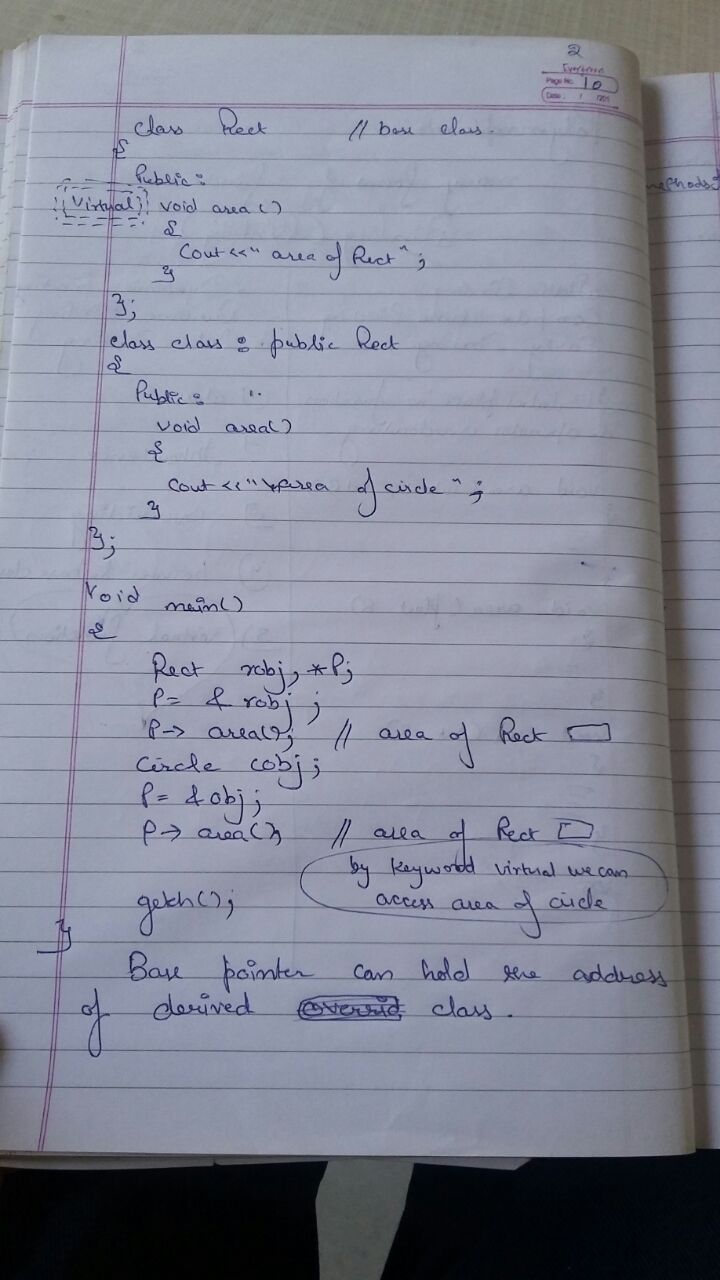 2
Evergreen
Page No. 10
Date: / /201
class Rect // base class.
{
Public:
Virtual void area()
{
Cout<<" area of Rect";
}
};
class class : public Rect
{
Public:
void area()
{
Cout<<" area of circle";
}
};
Void main()
{
Rect robj, *P;
P= & robj;
P-> area(); // area of Rect
Circle cobj;
P= &obj;
P-> area(); // area of Rect
by Keyword virtual we can
access area of circle
getch();
}
Base pointer can hold the address
of derived class.
methods: